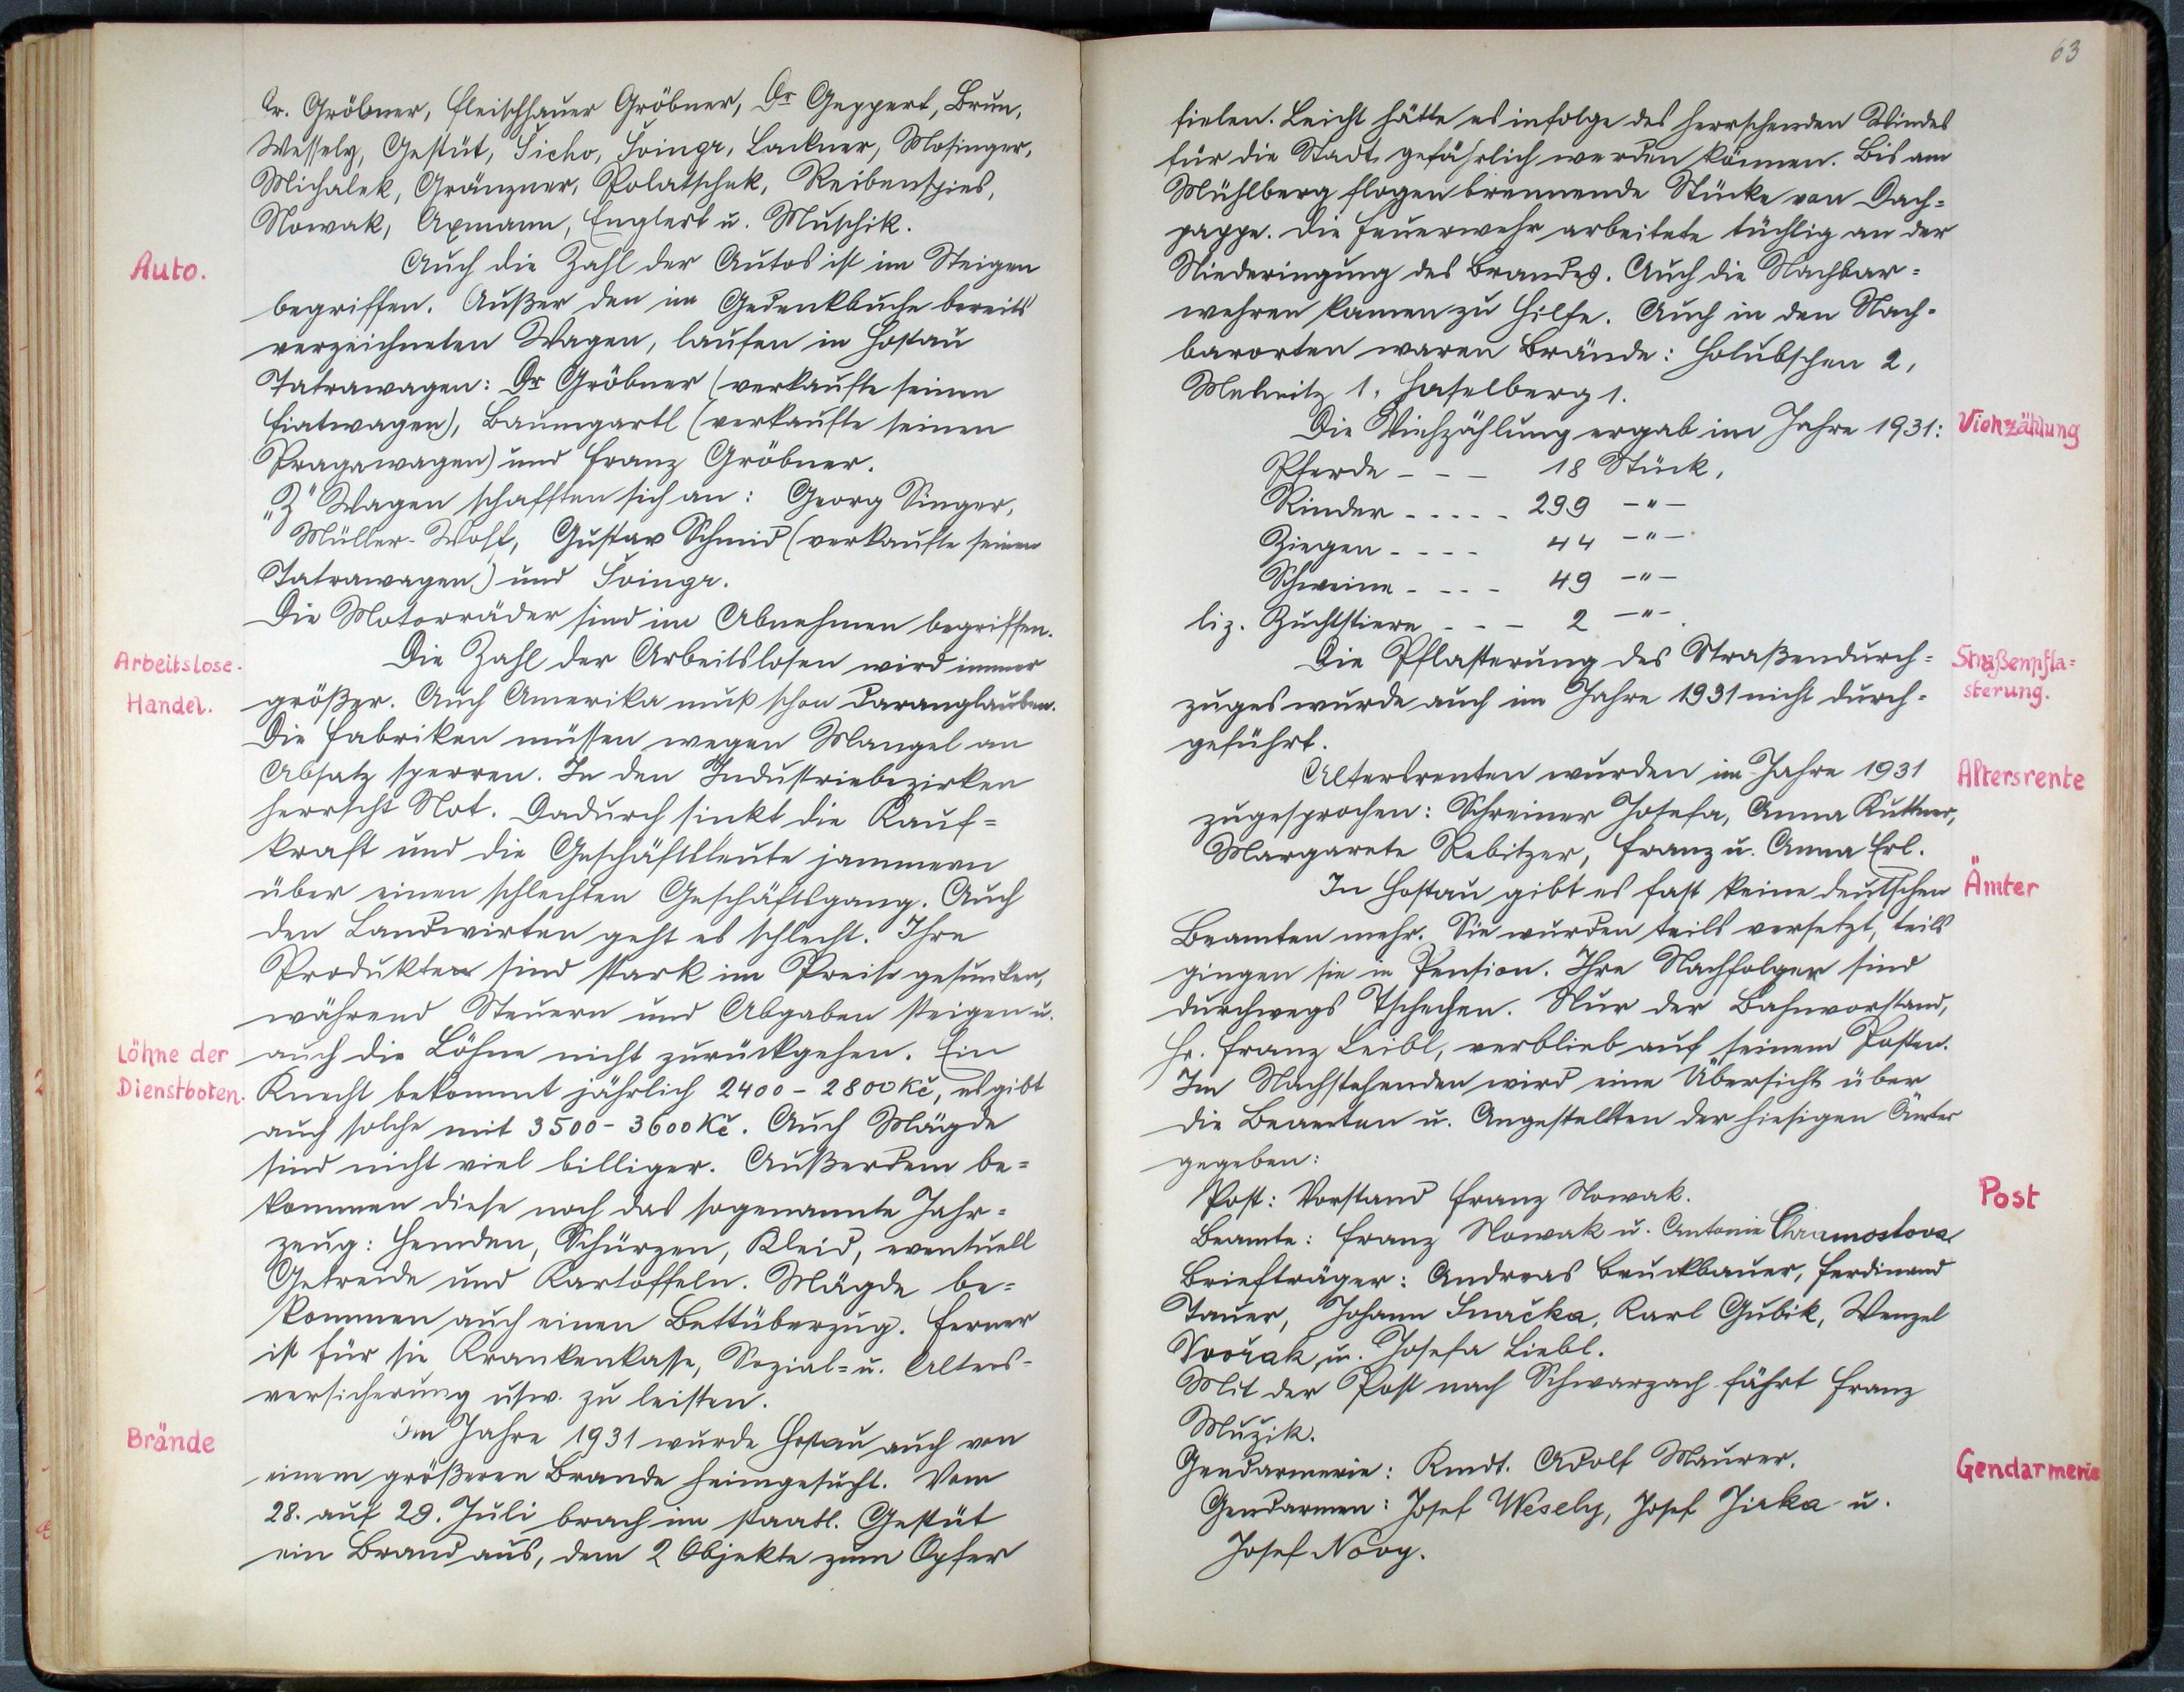 Fr. Gröbner, Fleischhauer Gröbner, Dr Geppert, Brun,
Wessely, Gestüt, Ticho, Svingr, Lackner, Mosinger,
Michalek, Gränzner, Polatschek, Reibenspies,
Nowak, Axmann, Englert u. Muschik.
Auto.
Auch die Zahl der Autos ist im Steigen
begriffen. Außer den im Gedenkbuche bereits
verzeichneten Wagen, laufen in Hostau
Tatrawagen: Dr Gröbner (verkaufte seinen
Fiatwagen), Baumgartl (verkaufte seinen
Pragawagen) und Franz Gröbner.
„Z" Wagen schafften sich an: Georg Singer,
Müller-Wolf, Gustav Schmid (verkaufte seinen
Tatrawagen) und Svingr.
Die Motorräder sind im Abnehmen begriffen.
Arbeitslose.
Handel.
Die Zahl der Arbeitslosen wird immer
größer. Auch Amerika muß schon daranglauben.
Die Fabriken müssen wegen Mangel an
Absatz sperren. In den Industriebezirken
herrscht Not. Dadurch sinkt die Kauf=
kraft und die Geschäftsleute jammern
über einen schlechten Geschäftsgang. Auch
den Landwirten geht es schlecht. Ihre
Produkte sind stark im Preise gesunken,
während Steuern und Abgaben steigen u.
Löhne der
Dienstboten.
auch die Löhne nicht zurückgehen. Ein
Knecht bekommt jährlich 2400 - 2800 Kč, es gibt
auch solche mit 3500 - 3600 Kč. Auch Mägde
sind nicht viel billiger. Außerdem be=
kommen diese noch das sogenannte Jahr=
zeug: Hemden, Schürzen, Kleid, eventuell
Getreide und Kartoffeln. Mägde be=
kommen auch einen Bettüberzug. Ferner
ist für sie Krankenkasse, Sozial= u. Alters-
versicherung usw. zu leisten.
Brände
Im Jahre 1931 wurde Hostau auch von
einem größeren Brande heimgesucht. Vom
28. auf 29. Juli brach im staatl. Gestüt
ein Brand aus, dem 2 Objekte zum Opfer
63
fielen. Leicht hätte es infolge des herrschenden Windes
für die Stadt gefährlich werden können. Bis am
Mühlberg flogen brennende Stücke von Dach=
pappe. Die Feuerwehr arbeitete tüchtig an der
Niederringung des Brandes. Auch die Nachbar=
wehren kamen zu Hilfe. Auch in den Nach-
barorten waren Brände: Holubschen 2,
Melmitz 1, Haselberg 1.
Viehzählung
Die Viehzählung ergab im Jahre 1931:
Pferde - - - 18 Stück,
Rinder - - - - - 299 -"-
Ziegen - - - - 44 -"-
Schweine - - - - 49 -"-
liz. Zuchtstiere - - - 2 -"-.
Straßenpfla=
sterung.
Die Pflasterung des Straßendurch=
zuges wurde auch im Jahre 1931 nicht durch-
geführt.
Altersrente
Altersrenten wurden im Jahre 1931
zugesprochen: Schreiner Josefa, Anna Kuttner,
Margarete Rebitzer, Franz u. Anna Erl.
Ämter
In Hostau gibt es fast keine deutschen
Beamten mehr. Sie wurden teils versetzt, teils
gingen sie in Pension. Ihre Nachfolger sind
durchwegs Tschechen. Nur der Bahnvorstand,
Hr. Franz Leibl, verblieb auf seinem Posten.
Im Nachstehenden wird eine Übersicht über
die Beamten u. Angestellten der hiesigen Ämter
gegeben:
Post
Post: Vorstand Franz Nowak.
Beamte: Franz Nowak u. Antonie Chramostova
Briefträger: Andreas Bruckbauer, Ferdinand
Tauer, Johann Snačka, Karl Gubik, Wenzel
Dvořak, u. Josefa Liebl.
Mit der Post nach Schwarzach fährt Franz
Muzik.
Gendarmerie
Gendarmerie: Kmdt. Adolf Maurer.
Gendarmen: Josef Wesely, Josef Jirka u.
Josef Novy.